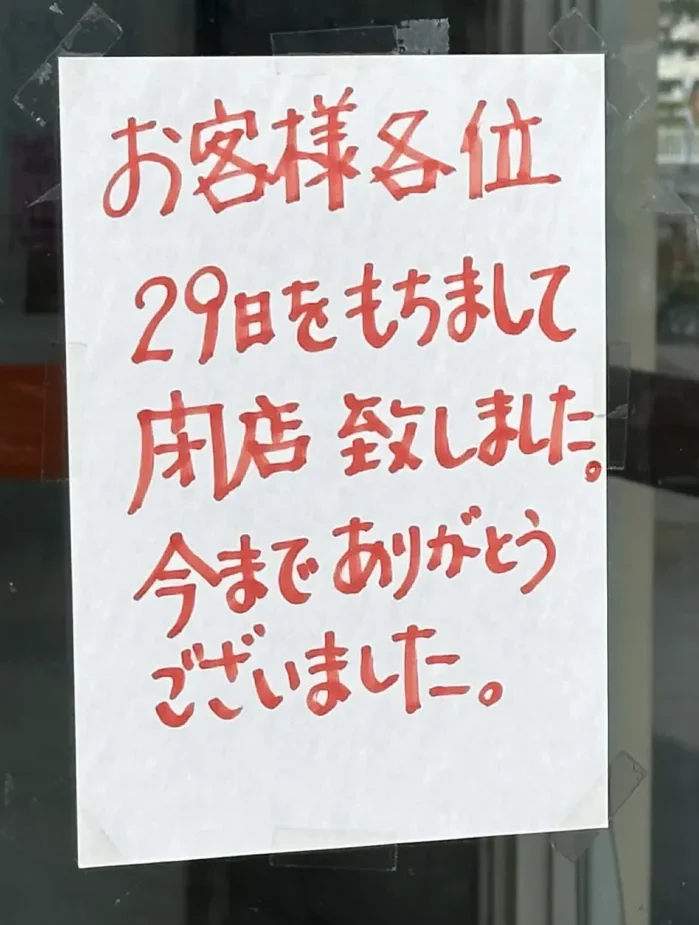 お客様各位
29日をもちまして
閉店致しました。
今までありがとう
ございました。